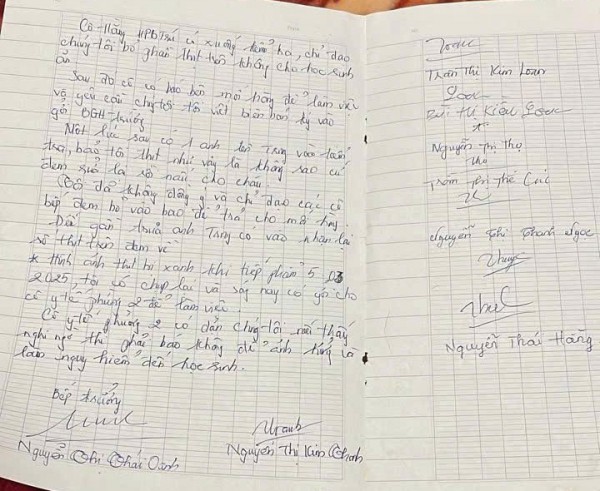 Cô Hằng HPBTSú có xuống kiểm tra, chỉ đạo
chúng tôi bỏ phần thịt trên không cho học sinh
ăn
Sau đó cô có báo bên mối hàng để làm việc
và yêu cầu chúng tôi viết biên bản ký vào
gởi BGH trường
Một lúc sau có 1 anh tên Trung vào kiểm
tra, bảo tôi thịt như vậy là không sao cứ
đem xuổi lại rồi nấu cho cháu
Cô đó không đồng ý và chỉ đạo các cô
bếp đem bỏ vào bao để trả cho mối hàng.
Đến gần trưa anh Trung có vào nhận lại
số thịt trên đem về
* Hình ảnh thịt bị xanh khi tiếp phẩm 5 03
2025, tôi có chụp lại và sáng nay có gởi cho
cô y tế phường 2 để làm việc.
Cô y tế phường 2 có dặn chúng tôi nếu thấy
nghi ngờ thì phải báo không để ảnh hưởng và
làm nguy hiểm đến học sinh.
Bếp trưởng
Nguyễn Thị Thái Oanh
Nguyễn Thị Kim Thanh
Trần Thị Kim Loan
Bùi Thị Kiều Loan
Nguyễn Thị Thọ
Thọ
Trần Thị Thế Cúc
Nguyễn Thị Thanh Ngọc
Nguyễn Thái Hằng